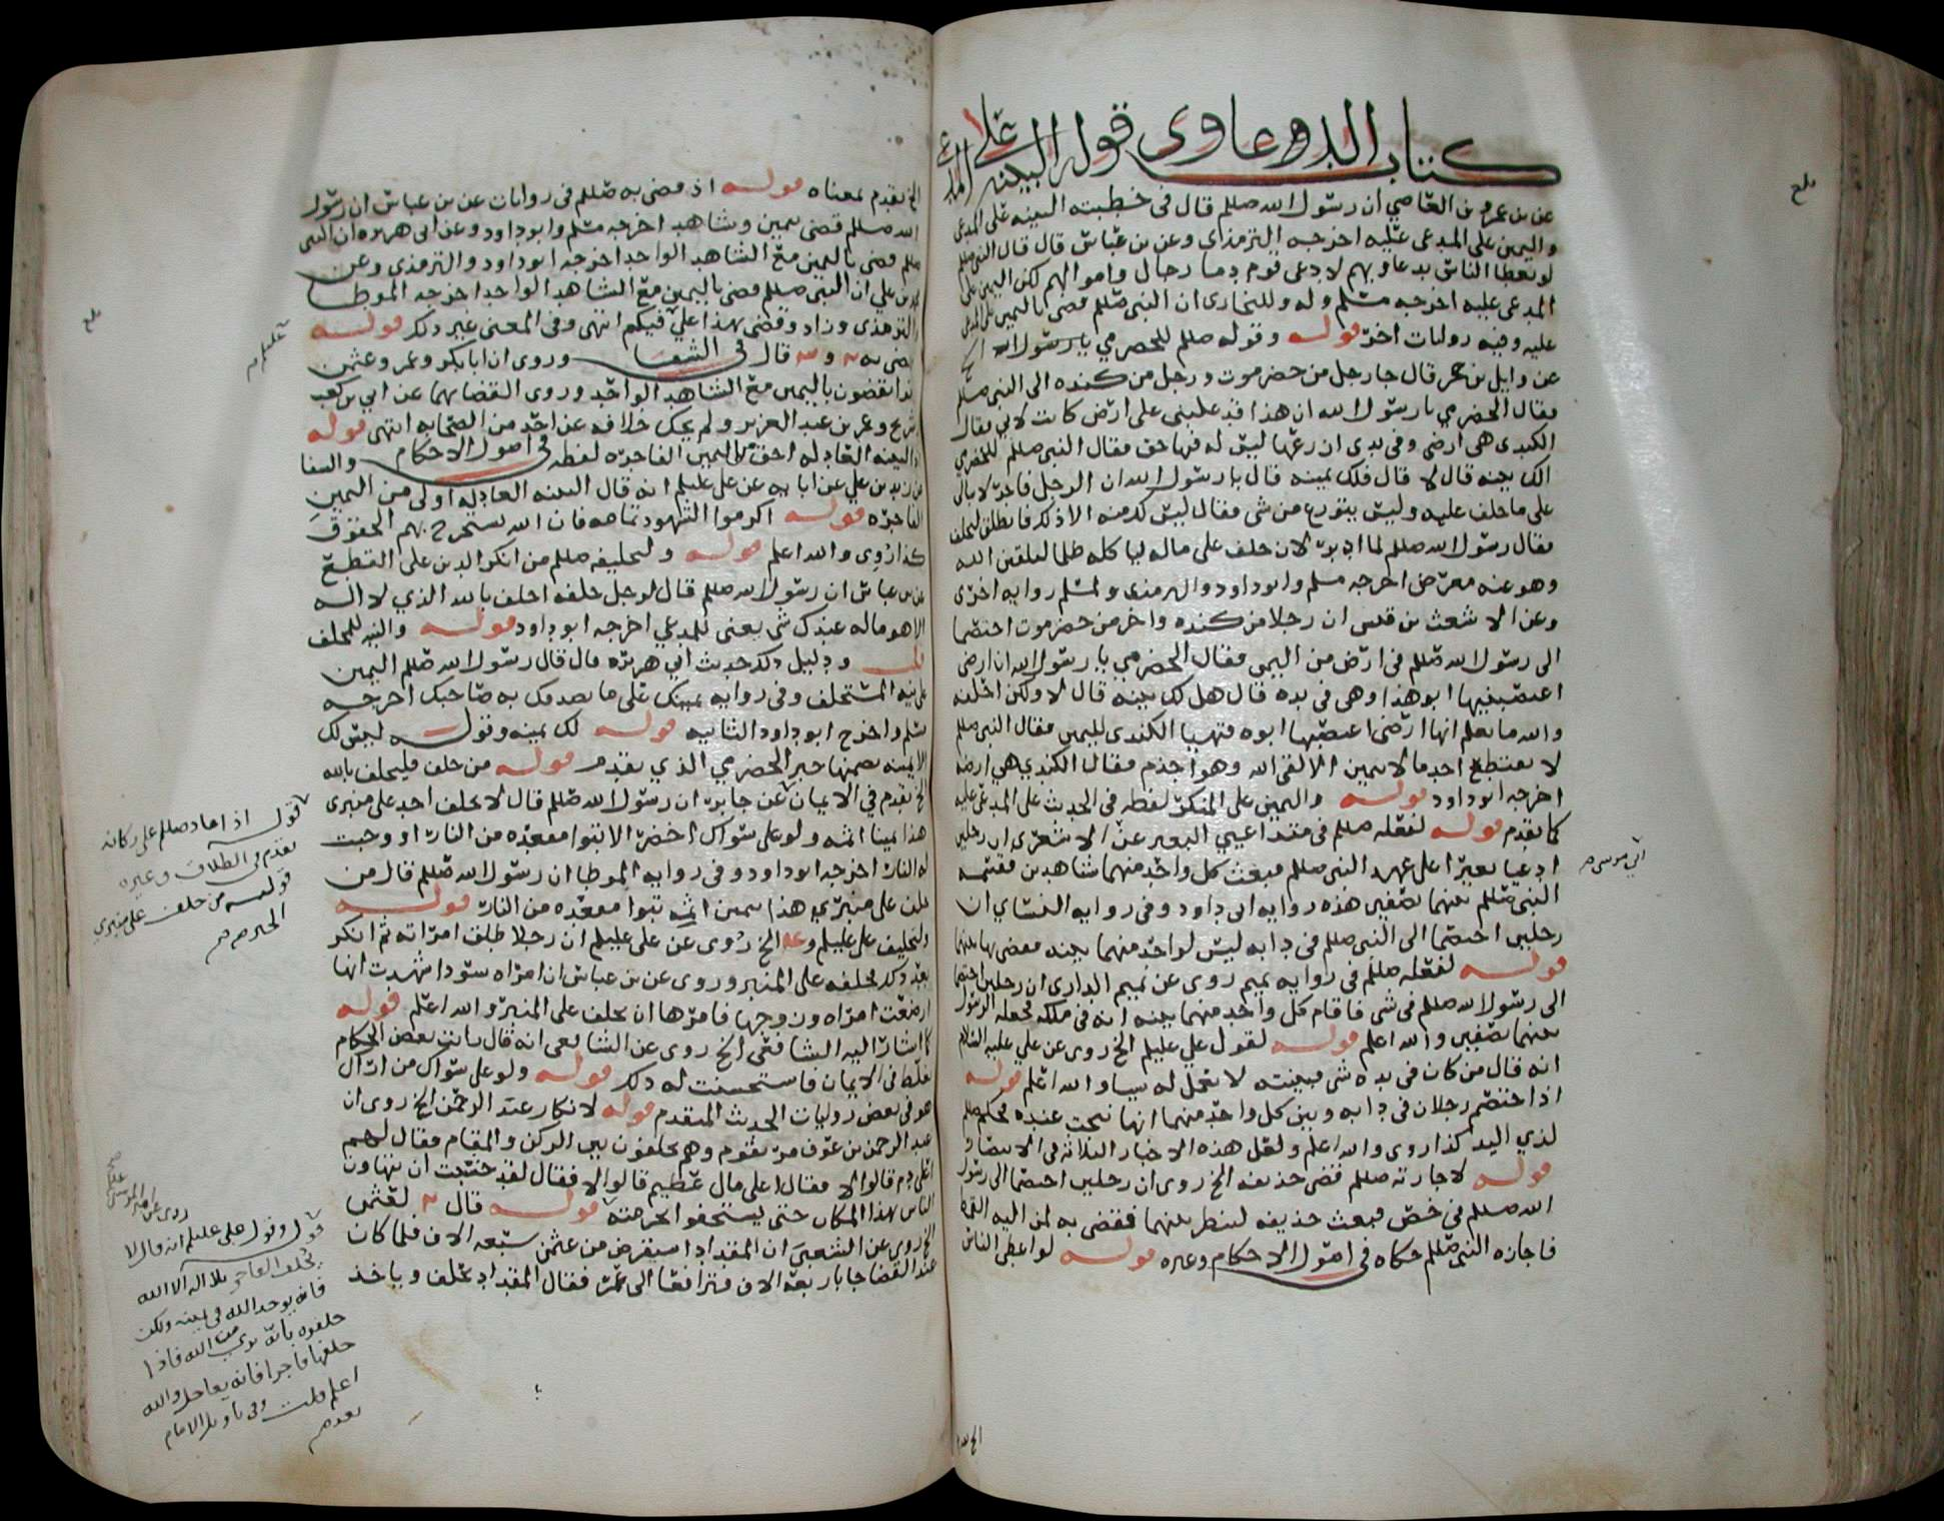 كتاب الدعاوى قوله البينة على المد عى
عن بن عمرو بن العاصي ان رسول الله صللم قال في خطبته البينه على المدعى
واليمين على المدعى عليه اخرجه الترمذي وعن بن عباس قال قال النبي صللم
لو يعطا الناس بدعاويهم لادعى قوم دما رجال واموالهم لكن اليمين على
المدعى عليه اخرجه مسلم وله وللبخارى ان النبي صللم قضى باليمين على المدعى
عليه وفيه روايات اخر قوله وقوله صللم للحضرمي يا رسول الله الخ
عن وايل بن حجر قال جا رجل من حضرموت ورجل من كنده الى النبي صللم
فقال الحضرمي يا رسول الله ان هذا قد غلبنى على ارض كانت لابي فقال
الكندي هى ارضى وفى يدى ازرعها ليس له فيها حق فقال النبي صللم للحضرمي
الك بينه قال لا قال فلك يمينه قال يا رسول الله ان الرجل فاجر لا يبالى
على ما حلف عليه وليس يتورع من شى فقال ليس لك منه الا ذلك فانطلق ليحلف
فقال رسول الله صللم لما ادبر لان حلف على ماله لياكله ظلما ليلقين الله
وهو عنه معرض اخرجه مسلم وابو داود والترمذي ولمسلم روايه اخرى
وعن الاشعث بن قيس ان رجلا من كنده واخر من حضرموت اختصما
الى رسول الله صللم في ارض من اليمن فقال الحضرمي يا رسول الله ان ارضى
اغتصبنيها ابو هذا وهى فى يده قال هل لك بينه قال لا ولكن احلفه
والله ما يعلم انها ارضى اغتصبها ابوه فتهيا الكندى لليمين فقال النبي صللم
لا يقتطع احد مالا بيمين الا لقى الله وهو اجذم فقال الكندي هي ارضه
اخرجه ابو داود قوله واليمين على المنكر لفظه فى الحديث على المدعى عليه
كما تقدم قوله لفعله صللم في متداعيي البعير عن الاشعرى ان رجلين
ابي موسى صح
ادعيا بعيرا على عهد النبي صللم فبعث كل واحد منهما شاهدين فقسمه
النبي صللم بينهما نصفين هذه روايه ابى داود وفى روايه النسائي ان
رجلين اختصما الى النبي صللم فى دابه ليس لواحد منهما بينه فقضى بها بينهما
قوله لفعله صللم في روايه تميم روى عن تميم الداري ان رجلين اختصما
الى رسول الله صللم فى شى فاقام كل واحد منهما بينه انه فى ملكه فجعله الرسول
بينهما نصفين والله اعلم قوله لقول علي عليلم الخ روى عن علي عليه السلام
انه قال من كان فى يده شى فبينته لا تعمل له شيا والله اعلم قوله
اذا اختصم رجلان في دابه وبين كل واحد منهما انها نتجت عنده فحكم صللم
لذي اليد كذا روى والله اعلم ولعل هذه الاخبار الثلاثه فى الانتصار
قوله لاجازته صللم قضى حذيفه الخ روى ان رجلين اختصما الى رسول
الله صللم في خص فبعث حذيفه لينظر بينهما فقضى به لمن اليه القمط
فاجازه النبي صللم حكاه فى اصول الاحكام وغيره قوله لو اعطى الناس
الخ تقدم
بلغ
الخ تقدم بمعناه قوله اذ قضى به صللم فى روايات عن بن عباس ان رسول
الله صللم قضى بيمين وشاهد اخرجه مسلم وابو داود وعن ابى هريره ان النبى
صللم قضى باليمين مع الشاهد الواحد اخرجه ابو داود والترمذي وعن
بن علي ان النبى صللم قضى باليمين مع الشاهد الواحد اخرجه الموطا
والترمذي وزاد وقضى بهذا علي فيكم انتهى وفى المعنى غير ذلك قوله
قال فى الشفا وروى ان ابا بكر وعمر وعثمن
يقضون باليمين مع الشاهد الواحد وروى القضا بهما عن ابي بن كعب
وشريح وعمر بن عبد العزيز ولم يحك خلافه عن احد من الصحابه انتهى قوله
والبينه العادله احق من اليمين الفاجره لفظه فى اصول الاحكام والشفا
عن زيد بن علي عن ابايه عن على عليلم انه قال البينه العادله اولى من اليمين
الفاجره قوله اكرموا الشهود تمامه فان الله يستخرج بهم الحقوق
كذا روى والله اعلم قوله وتحليفه صللم من انكر الدين على القطع
عن بن عباس ان رسول الله صللم قال لرجل حلفه احلف بالله الذي لا اله
الا هو ماله عندك شى يعنى للمدعي اخرجه ابو داود قوله والنيه للمحلف
ودليل ذلك حديث ابي هريره قال قال رسول الله صللم اليمين
على نيه المستحلف وفى روايه يمينك على ما يصدقك به صاحبك اخرجه
مسلم واخرج ابو داود الثانيه قوله لك يمينه وقوله ليس لك
الا يمينه تضمنها خبر الحضرمي الذي تقدم قوله من حلف فليحلف بالله
الخ تقدم في الايمان عن جابر ان رسول الله صللم قال لا يحلف احد على منبرى
هذا يمينا اثمه ولو على سواك اخضر الا تبوا مقعده من النار او وجبت
له النار اخرجه ابو داود وفى روايه الموطا ان رسول الله صللم قال من
حلف على منبري هذا بيمين اثمه تبوا مقعده من النار قوله
وتحليف على عليلم وعه الخ روى عن على عليلم ان رجلا طلق امراته ثم انكر
بعد ذلك فحلفه على المنبر وروى عن بن عباس ان امراه سودا شهدت انها
ارضعت امراه وزوجها فامرها ان تحلف على المنبر والله اعلم قوله
كما اشار اليه الشافعى الخ روى عن الشافعى انه قال رايت بعض الحكام
يغلظ فى الايمان فاستحسنت له ذلك قوله ولو على سواك من اراك
هو فى بعض روايات الحديث المتقدم قوله لانكار عبد الرحمن الخ روى ان
عبد الرحمن بن عوف مر بقوم وهم يحلفون بين الركن والمقام فقال لهم
اعلى دم قالوا لا فقال اعلى مال عظيم قالوا لا فقال لقد خشيت ان يتهاون
الناس بهذا المكان حتى يستخفوا بحرمته قوله قال لعثمن
الخ روى عن الشعبى ان المقداد استقرض من عثمن سبعه الاف فلما كان
عند القضا جا باربعه الاف فترافعا الى عمر فقال المقداد تحلف وياخذ
بلغ
عليلم صح
قوله اذ اعاد صللم على ركانه
تقدم فى الطلاق وغيره
قوله من حلف على منبري
الخبر صح
قوله وقول على عليلم انه قال لا
يحلف الفاجر بلا اله الا الله
فانه يوحد الله فى يمينه ولكن
حلفوه بانه برى من الله فاذا
حلفها فاجرا فانه يعاجل والله
اعلم قلت وفى تاويله الامام
تقدم